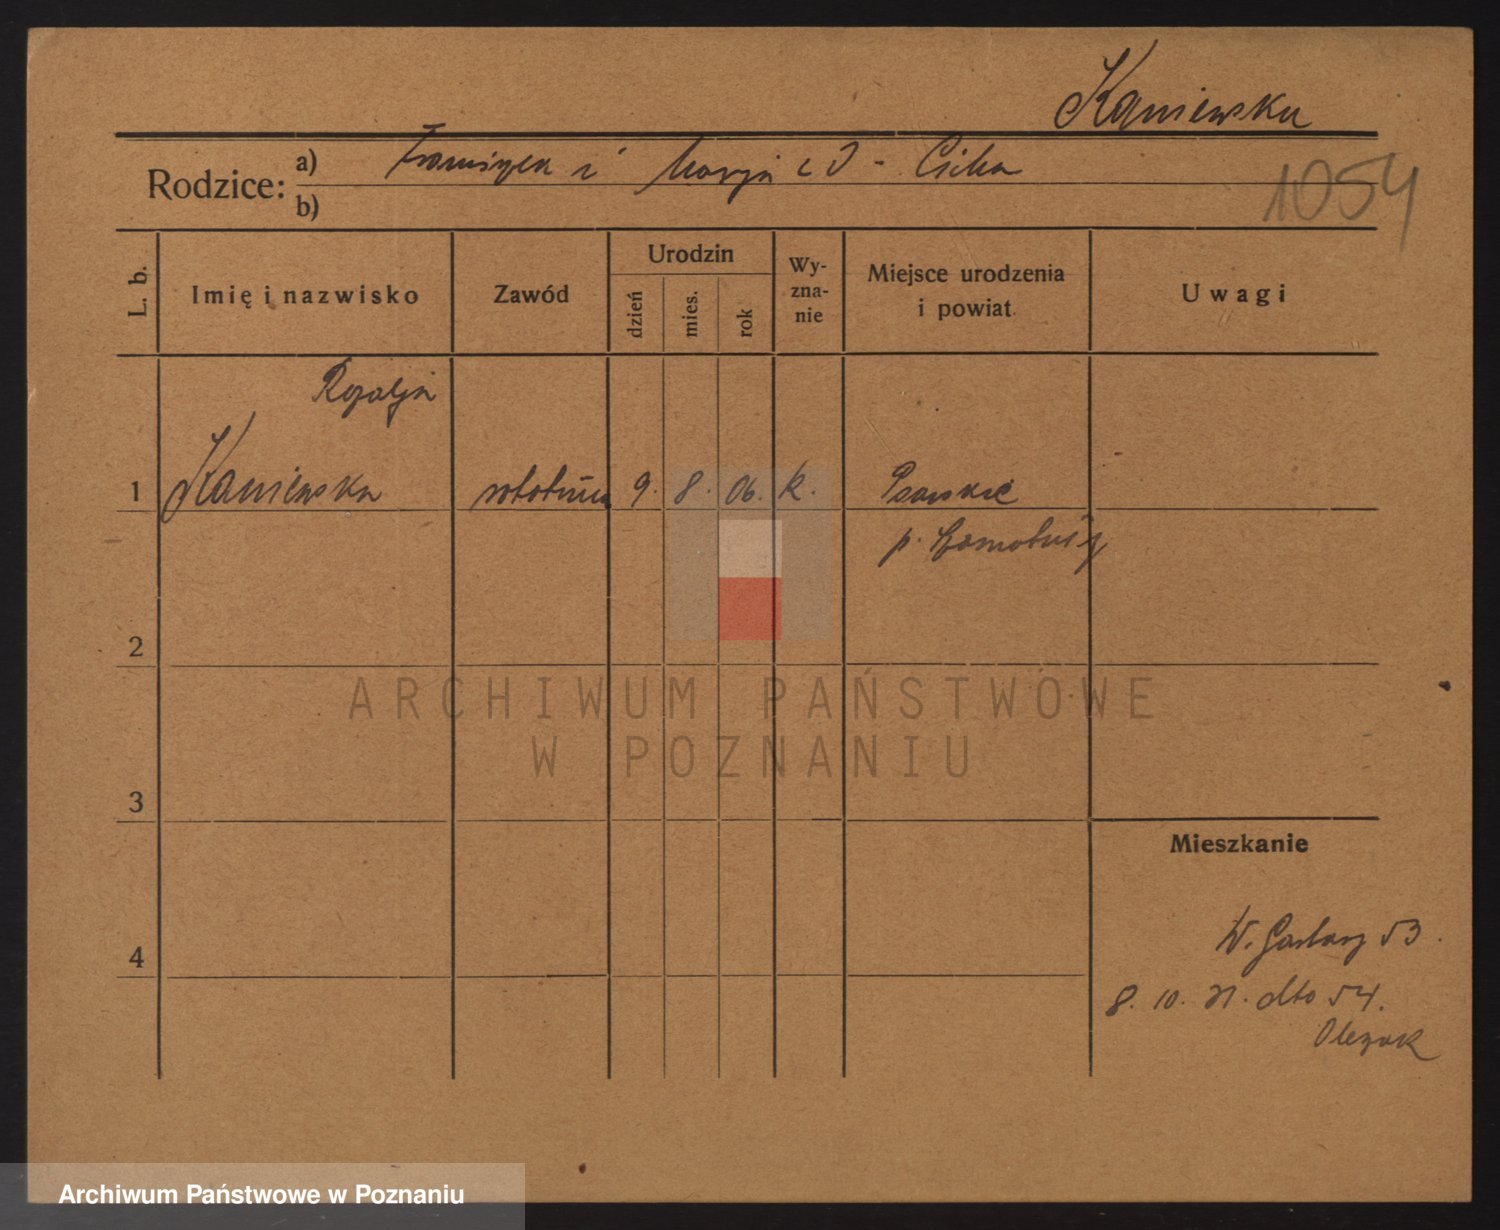 Kaniewska
Rodzice: a) Franciszek i Marja z d.
b)
1054
L. b.
Imię i nazwisko
Zawód
Urodzin
dzień
mies.
rok
Wy-
zna-
nie
Miejsce urodzenia
i powiat
Uwagi
Rozalja
1 Kaniewska robotnica 9. 8. 06. k. Psarskie
p. Szamotuły
2
ARCHIWUM PAŃSTWOWE
W POZNANIU
3
Mieszkanie
4
W. Garbary 53.
8. 10. 31. dto 54.
Olczak
Archiwum Państwowe w Poznaniu